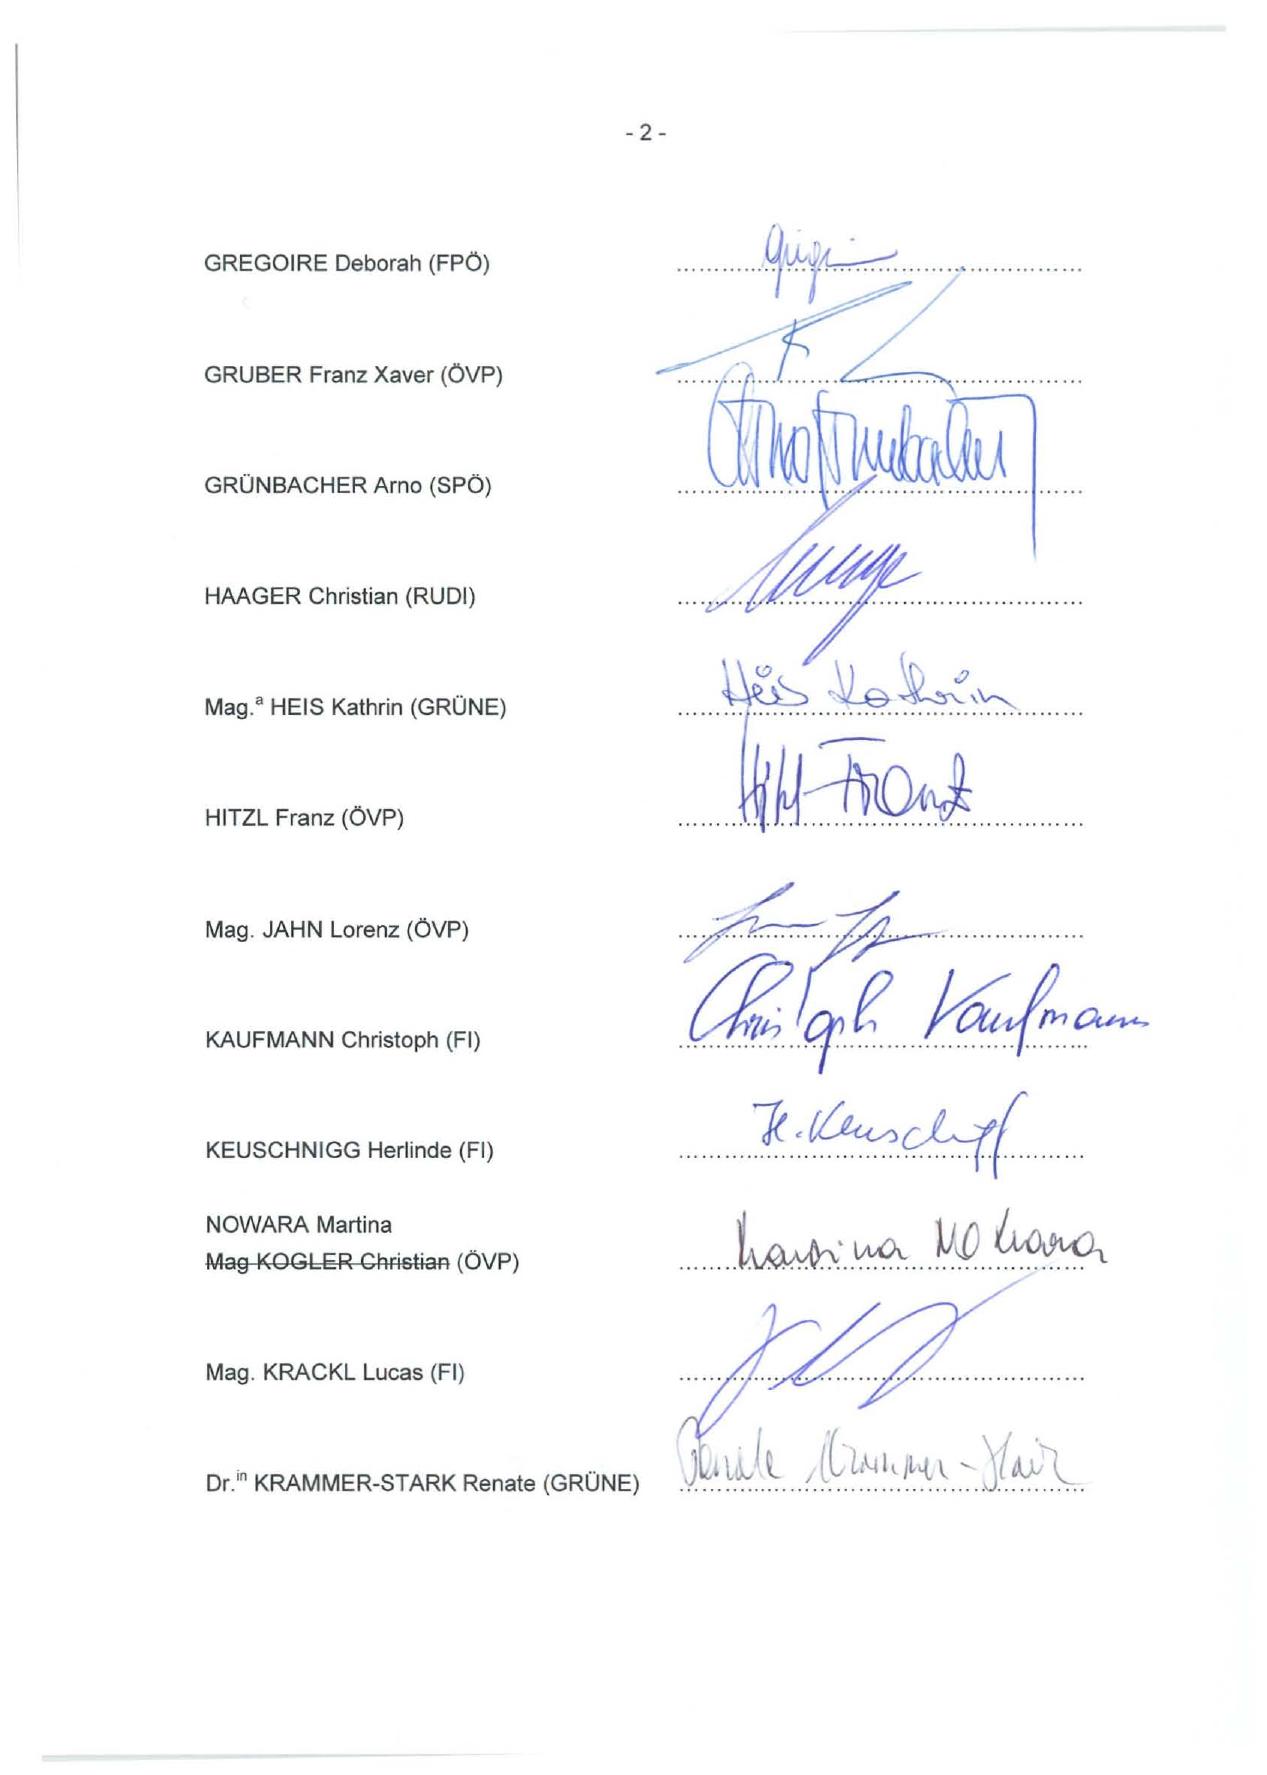 - 2 -
GREGOIRE Deborah (FPÖ)
GRUBER Franz Xaver (ÖVP)
GRÜNBACHER Arno (SPÖ)
Arno Grünbacher
HAAGER Christian (RUDI)
Mag.ª HEIS Kathrin (GRÜNE) Heis Kathrin
HITZL Franz (ÖVP) Hitzl Franz
Mag. JAHN Lorenz (ÖVP)
KAUFMANN Christoph (FI) Christoph Kaufmann
KEUSCHNIGG Herlinde (FI) H. Keuschnigg
NOWARA Martina
Mag KOGLER Christian (ÖVP) Martina Nowara
Mag. KRACKL Lucas (FI)
Dr.in KRAMMER-STARK Renate (GRÜNE) Renate Krammer-Stark